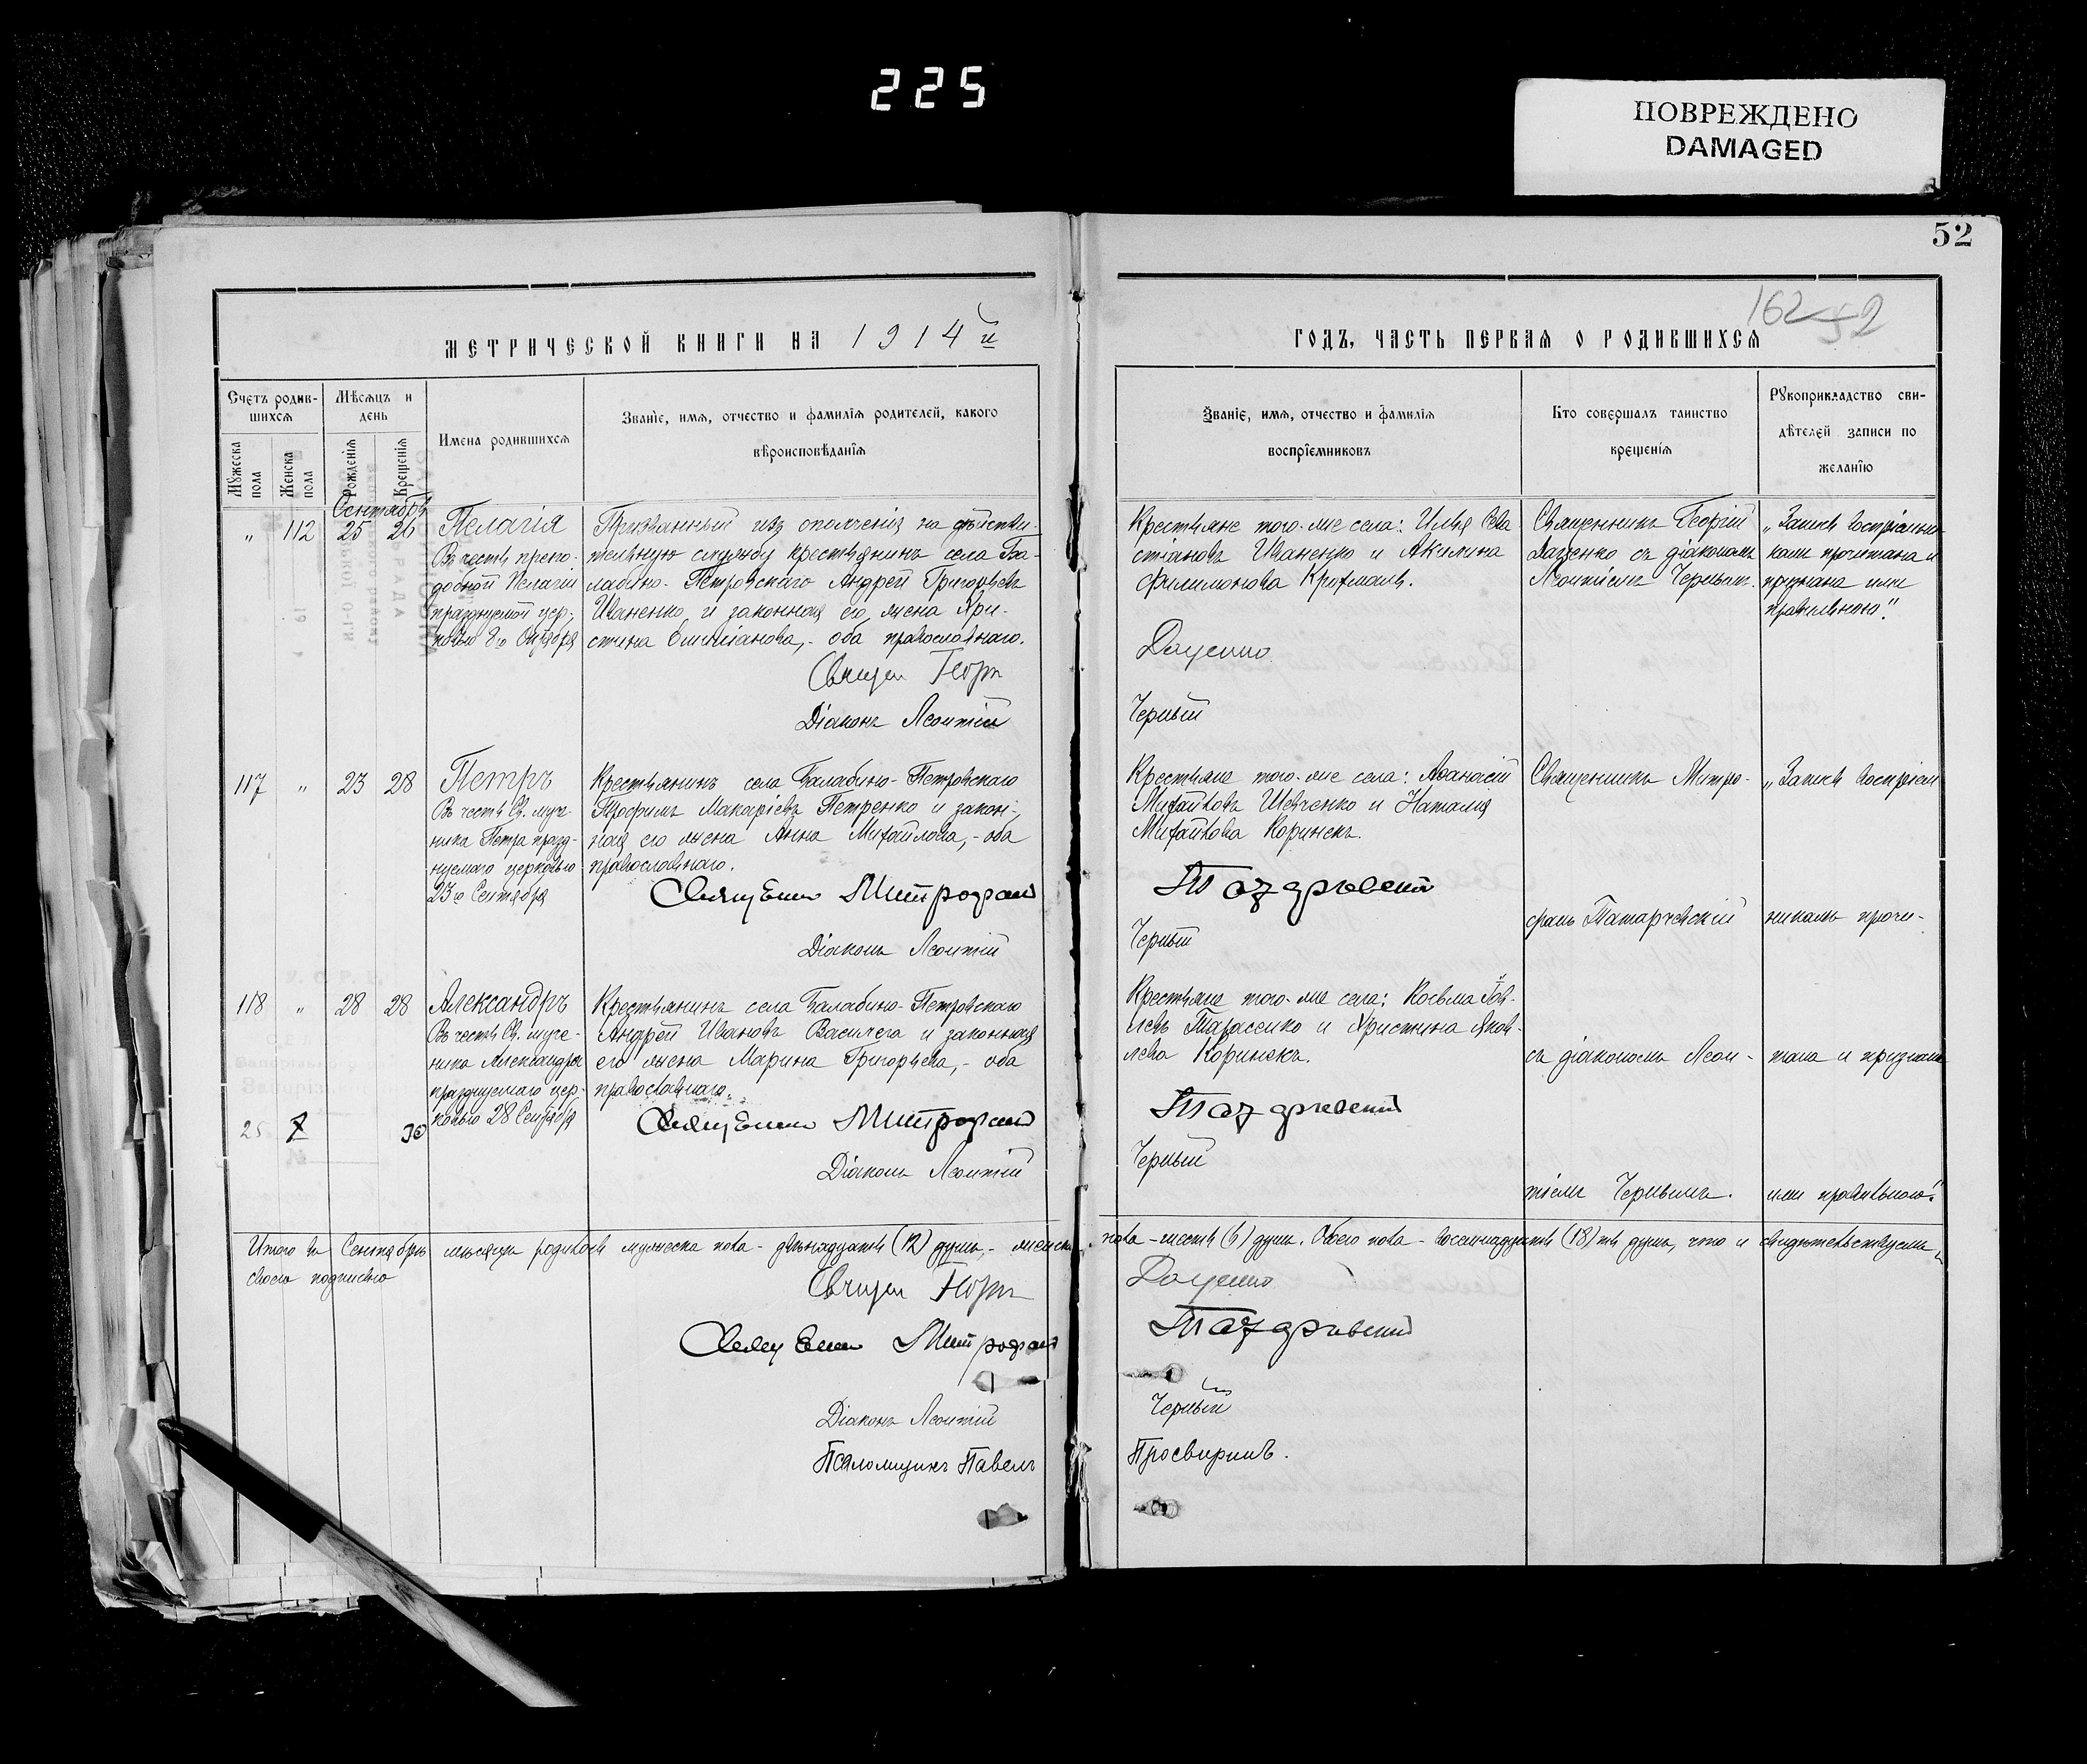 225
ПОВРЕЖДЕНО
DAMAGED
52
162 52
МЕТРИЧЕСКОЙ КНИГИ НА 1914й
ГОДЪ, ЧАСТЬ ПЕРВАЯ О РОДИВШИХСЯ
Счетъ родив-
шихся
Мужеска пола
Женска пола
Мѣсяцъ и
день
Рожденія
Крещенія
Имена родившихся
Званіе, имя, отчество и фамилія родителей, какого
вѣроисповѣданія
Званіе, имя, отчество и фамилія
воспріемниковъ
Кто совершалъ таинство
крещенія
Рукоприкладство сви-
дѣтелей записи по
желанію
Сентябрь
„ 112 25 26
Пелагія
Въ честь препо-
добной Пелагіи
празднуемой цер-
ковью 8го Октября
Призванный изъ ополченія на дѣйстви-
тельную службу крестьянинъ села Ба-
лабино-Петровскаго Андрей Григорьевъ
Иваненко и законная его жена Хри-
стина Емиліанова, - оба православнаго.
Священ Георг
Діаконъ Леонтій
Крестьяне того-же села: Илья Сева
стіановъ Иваненко и Акилина
Филимонова
Даценко
Черный
Священникъ Георгій
Даценко съ діакономъ
Леонтіемъ Чернымъ.
„Запись воспріемни-
ками прочитана и
признана ими
правильною".
117 „ 23 28
Петръ
Въ честь Св. муче-
ника Петра празд-
нуемаго церковью
23го Сентября
Крестьянинъ села Балабино-Петровскаго
Трофимъ Макаріевъ Петренко и закон-
ная его жена Анна Михайлова, - оба
православнаго.
Священник Митрофан
Діаконъ Леонтій
Крестьяне того-же села: Афанасій
Михайловъ Шевченко и Наталія
Михайлова Коринекъ.
Черный
Священникъ Митро-
фанъ
„Запись воспріем
никами прочи-
118 „ 28 28
Александръ
Въ честь Св. муче-
ника Александра
празднуемаго цер-
ковью 28 Сентября
Крестьянинъ села Балабино-Петровскаго
Андрей Ивановъ Василега и законная
его жена Марина Григорьева, - оба
православнаго.
Священник Митрофан
Діаконъ Леонтій
Крестьяне того-же села: Косьма
Тарасенко и Христина Яков-
лева Коринекъ.
Черный
съ діакономъ Леон-
тіемъ Чернымъ.
тана и признана
ими правильною".
Итого въ Сентябрѣ мѣсяцѣ родилось мужеска пола - двѣнадцать (12) душъ, - женска пола - шесть (6) душъ. Обоего пола - восемнадцать (18) душъ, что и свидѣтельствуемъ
своею подписью
Священ Георг Даценко
Священник Митрофан
Діаконъ Леонтій Черный
Псаломщикъ Павелъ Просвиринъ.